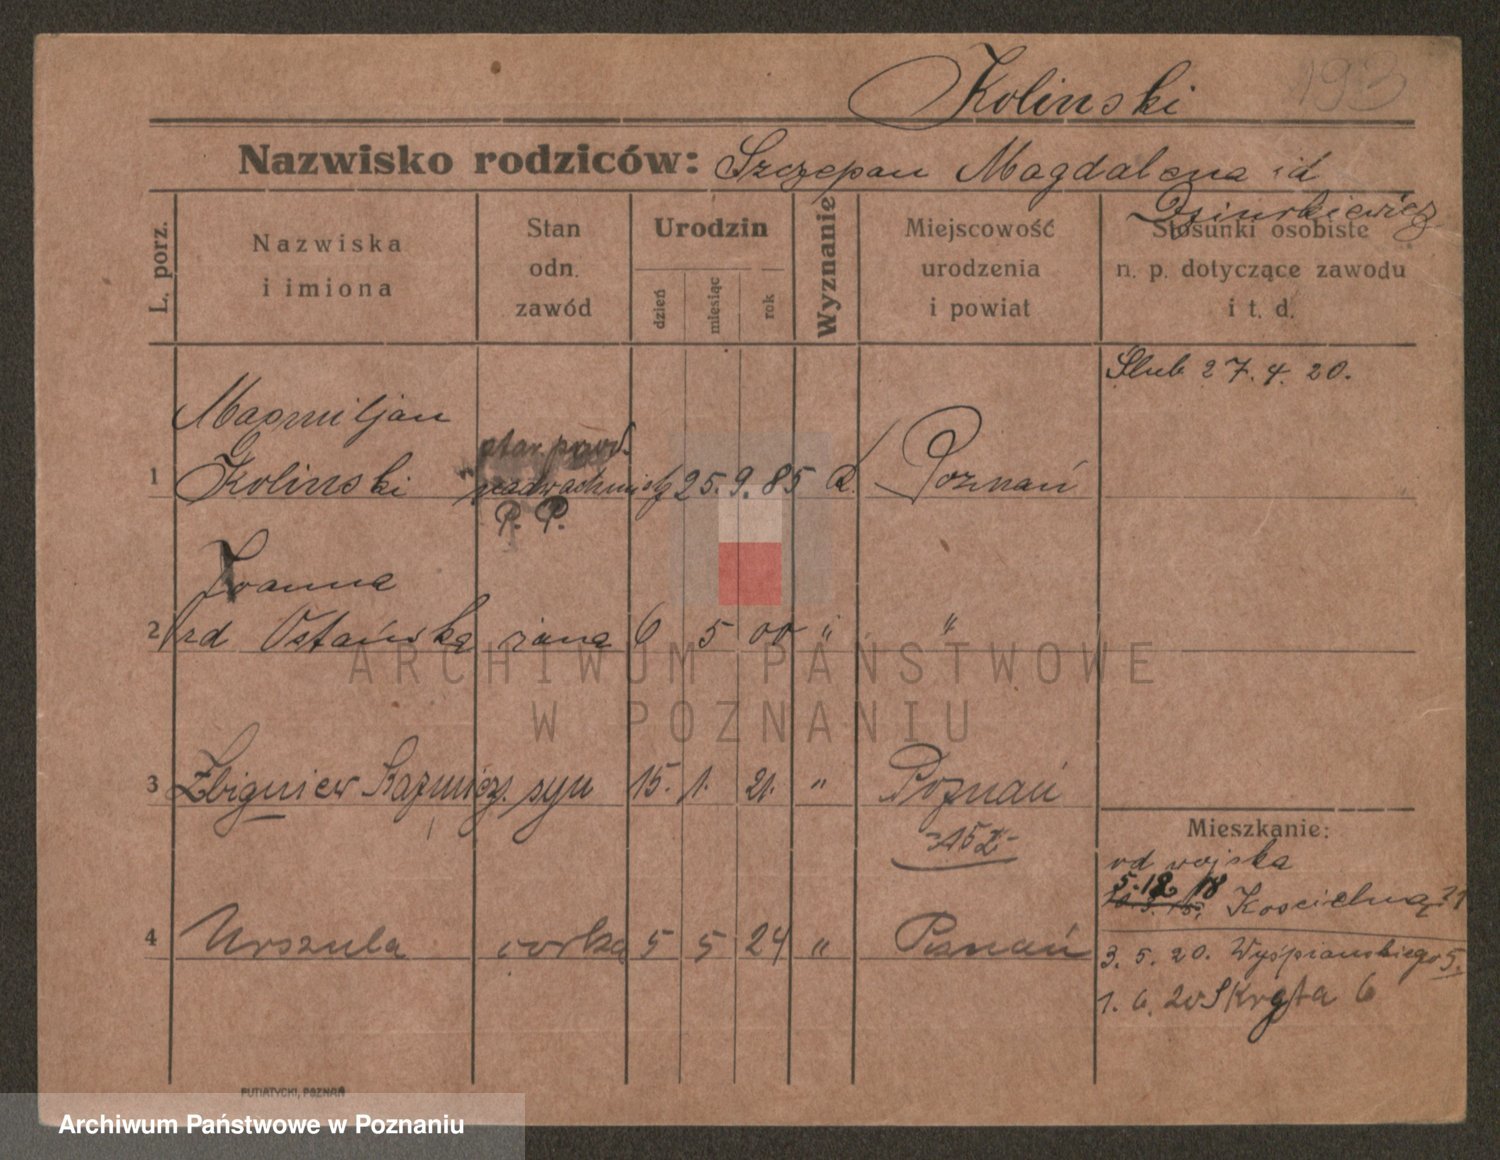 193
Kolinski
Nazwisko rodziców: Szczepan Magdalena
L. porz.
Nazwiska
i imiona
Stan
odn.
zawód
Urodzin
dzień
miesiąc
rok
Wyznanie
Miejscowość
urodzenia
i powiat
Stosunki osobiste
n. p. dotyczące zawodu
i t. d.
Slub 27. 4. 20.
Maxmiljan
1 Kolinski 25. 9. 85 Poznań
P. P.
Joanna
2 żona 6 5 00 " "
3 Zbigniew Kazmierz. syn 15. 1. 21. " Poznań
4 Urszula córka 5 5 24 " Poznań
Mieszkanie:
od wojska
5. 12 18 Koscielna 21
3. 5. 20. Wyśpianskiego 5.
1. 6. Kręta 6
PUTIATYCKI, POZNAŃ
ARCHIWUM PAŃSTWOWE
W POZNANIU
Archiwum Państwowe w Poznaniu